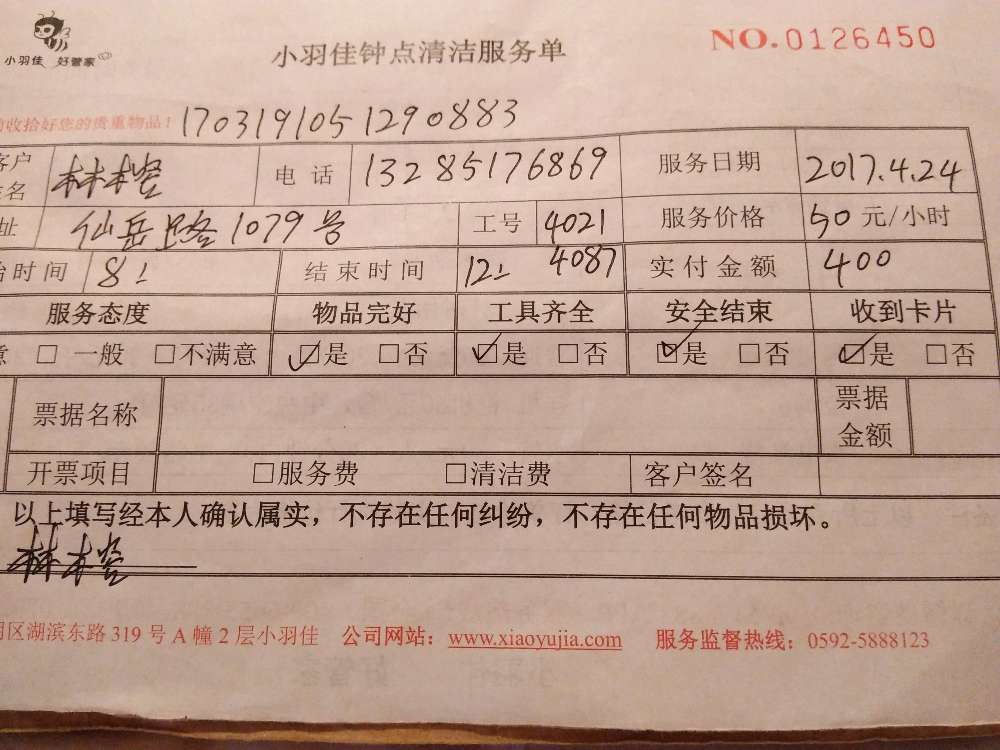 小羽佳 好管家
小羽佳钟点清洁服务单
NO.0126450
收拾好您的贵重物品! 1703191051290883
客户姓名 林榕 电话 13285176869 服务日期 2017.4.24
址 仙岳路1079号 工号 4021 服务价格 50元/小时
时间 8: 结束时间 12: 4087 实付金额 400
服务态度 物品完好 工具齐全 安全结束 收到卡片
意 □一般 □不满意 ☑是 □否 ☑是 □否 ☑是 □否 ☑是 □否
票据名称 票据金额
开票项目 □服务费 □清洁费 客户签名
以上填写经本人确认属实，不存在任何纠纷，不存在任何物品损坏。
林榕
区湖滨东路319号A幢2层小羽佳 公司网站：www.xiaoyujia.com 服务监督热线：0592-5888123